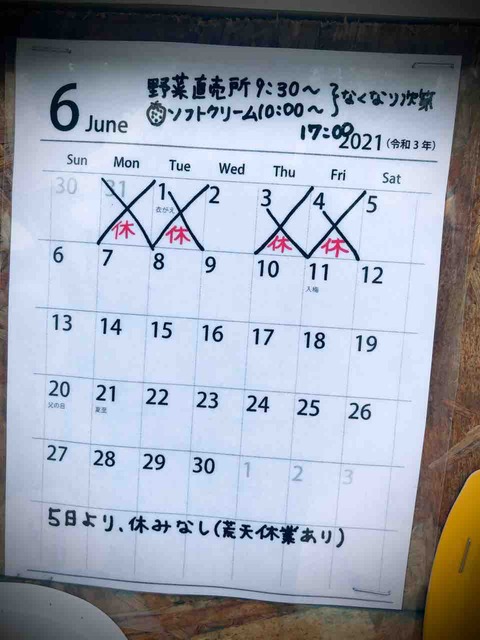 6 June
野菜直売所9:30～
ソフトクリーム10:00～
}なくなり次第
17:00
2021(令和3年)
Sun Mon Tue Wed Thu Fri Sat
30 31 1 2 3 4 5
衣がえ
休 休 休 休
6 7 8 9 10 11 12
人権
13 14 15 16 17 18 19
20 21 22 23 24 25 26
父の日 夏至
27 28 29 30 1 2 3
5日より、休みなし(荒天休業あり)